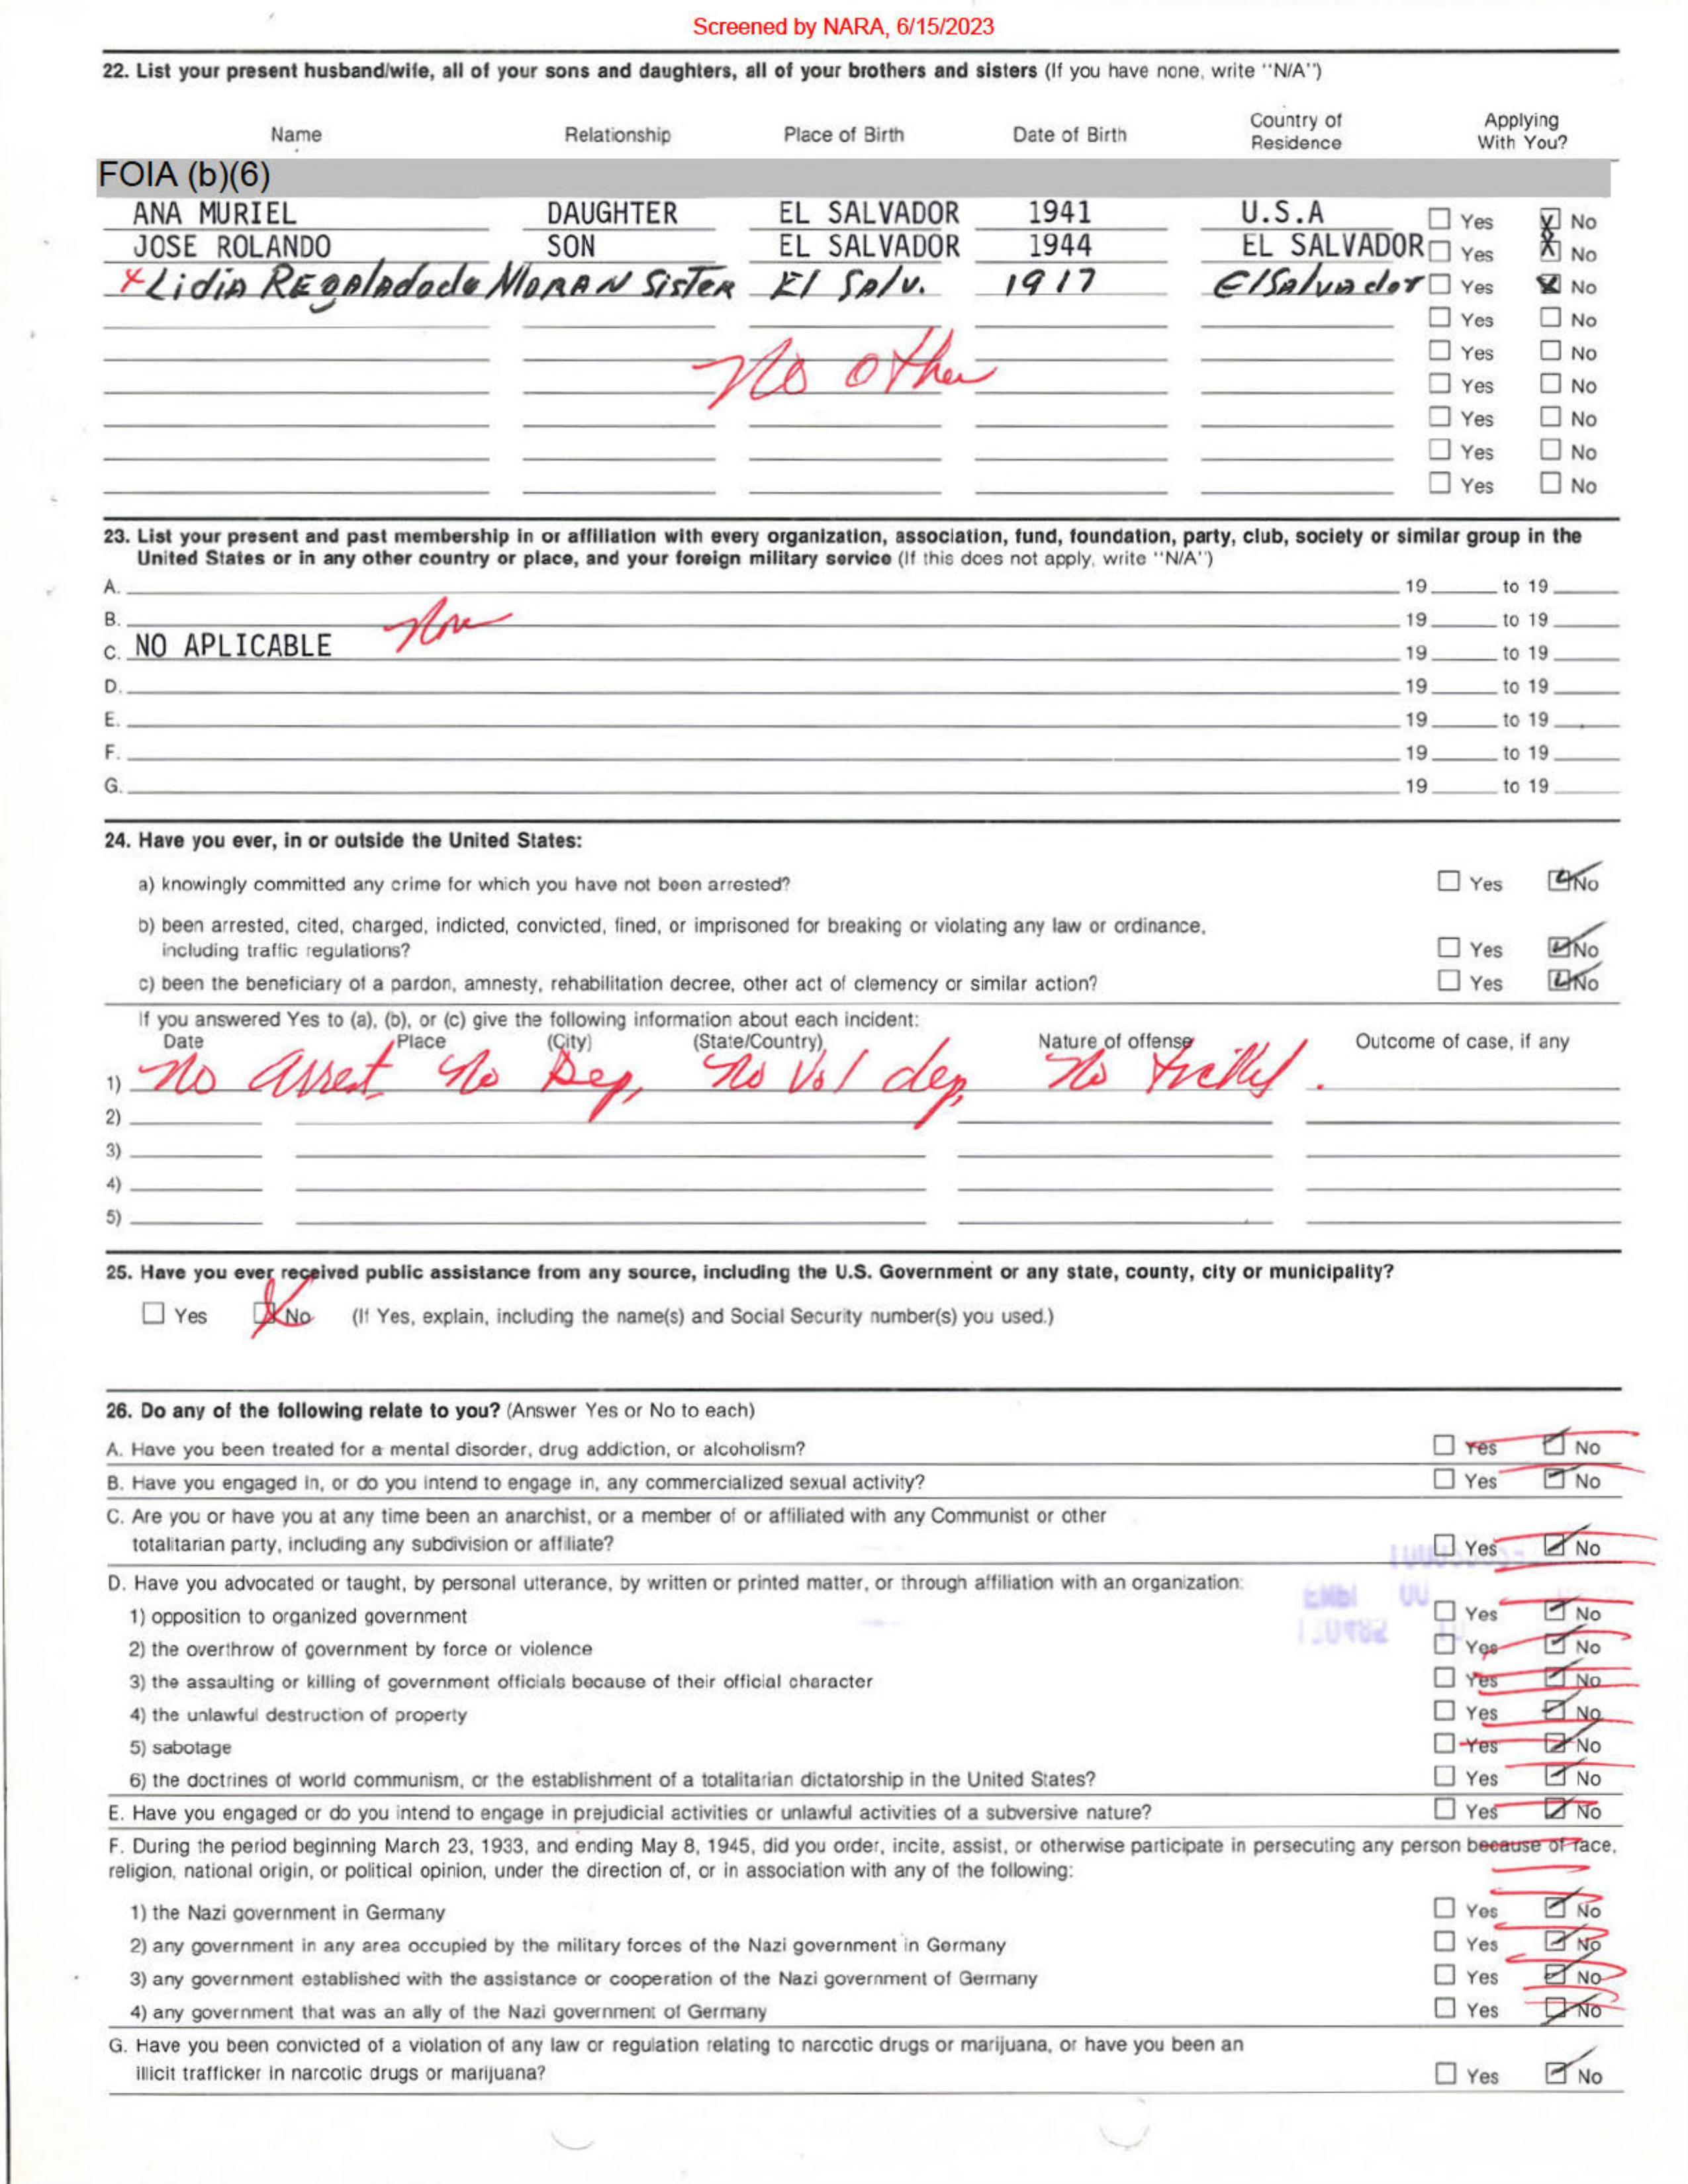 Screened by NARA, 6/15/2023
22. List your present husband/wife, all of your sons and daughters, all of your brothers and sisters (If you have none, write "N/A")
Name Relationship Place of Birth Date of Birth Country of Residence Applying With You?
FOIA (b)(6)
ANA MURIEL DAUGHTER EL SALVADOR 1941 U.S.A ☐ Yes ☒ No
JOSE ROLANDO SON EL SALVADOR 1944 EL SALVADOR ☐ Yes ☒ No
x Lidia REgalado de MORAN SiSTER El Salv. 1917 El Salvador ☐ Yes ☒ No
☐ Yes ☐ No
☐ Yes ☐ No
No other
☐ Yes ☐ No
☐ Yes ☐ No
☐ Yes ☐ No
☐ Yes ☐ No
23. List your present and past membership in or affiliation with every organization, association, fund, foundation, party, club, society or similar group in the
United States or in any other country or place, and your foreign military service (If this does not apply, write "N/A")
A. 19 to 19
B. None 19 to 19
C. NO APLICABLE 19 to 19
D. 19 to 19
E. 19 to 19
F. 19 to 19
G. 19 to 19
24. Have you ever, in or outside the United States:
a) knowingly committed any crime for which you have not been arrested? ☐ Yes ☑ No
b) been arrested, cited, charged, indicted, convicted, fined, or imprisoned for breaking or violating any law or ordinance,
including traffic regulations? ☐ Yes ☑ No
c) been the beneficiary of a pardon, amnesty, rehabilitation decree, other act of clemency or similar action? ☐ Yes ☑ No
If you answered Yes to (a), (b), or (c) give the following information about each incident:
Date Place (City) (State/Country) Nature of offense Outcome of case, if any
1) No arrest, No Dep, No Vol dep, No
2)
3)
4)
5)
25. Have you ever received public assistance from any source, including the U.S. Government or any state, county, city or municipality?
☐ Yes ☒ No (If Yes, explain, including the name(s) and Social Security number(s) you used.)
26. Do any of the following relate to you? (Answer Yes or No to each)
A. Have you been treated for a mental disorder, drug addiction, or alcoholism? ☐ Yes ☑ No
B. Have you engaged in, or do you intend to engage in, any commercialized sexual activity? ☐ Yes ☑ No
C. Are you or have you at any time been an anarchist, or a member of or affiliated with any Communist or other
totalitarian party, including any subdivision or affiliate? ☐ Yes ☑ No
D. Have you advocated or taught, by personal utterance, by written or printed matter, or through affiliation with an organization:
1) opposition to organized government ☐ Yes ☑ No
2) the overthrow of government by force or violence ☐ Yes ☑ No
3) the assaulting or killing of government officials because of their official character ☐ Yes ☑ No
4) the unlawful destruction of property ☐ Yes ☑ No
5) sabotage ☐ Yes ☑ No
6) the doctrines of world communism, or the establishment of a totalitarian dictatorship in the United States? ☐ Yes ☑ No
E. Have you engaged or do you intend to engage in prejudicial activities or unlawful activities of a subversive nature? ☐ Yes ☑ No
F. During the period beginning March 23, 1933, and ending May 8, 1945, did you order, incite, assist, or otherwise participate in persecuting any person because of race,
religion, national origin, or political opinion, under the direction of, or in association with any of the following:
1) the Nazi government in Germany ☐ Yes ☑ No
2) any government in any area occupied by the military forces of the Nazi government in Germany ☐ Yes ☑ No
3) any government established with the assistance or cooperation of the Nazi government of Germany ☐ Yes ☑ No
4) any government that was an ally of the Nazi government of Germany ☐ Yes ☑ No
G. Have you been convicted of a violation of any law or regulation relating to narcotic drugs or marijuana, or have you been an
illicit trafficker in narcotic drugs or marijuana? ☐ Yes ☑ No